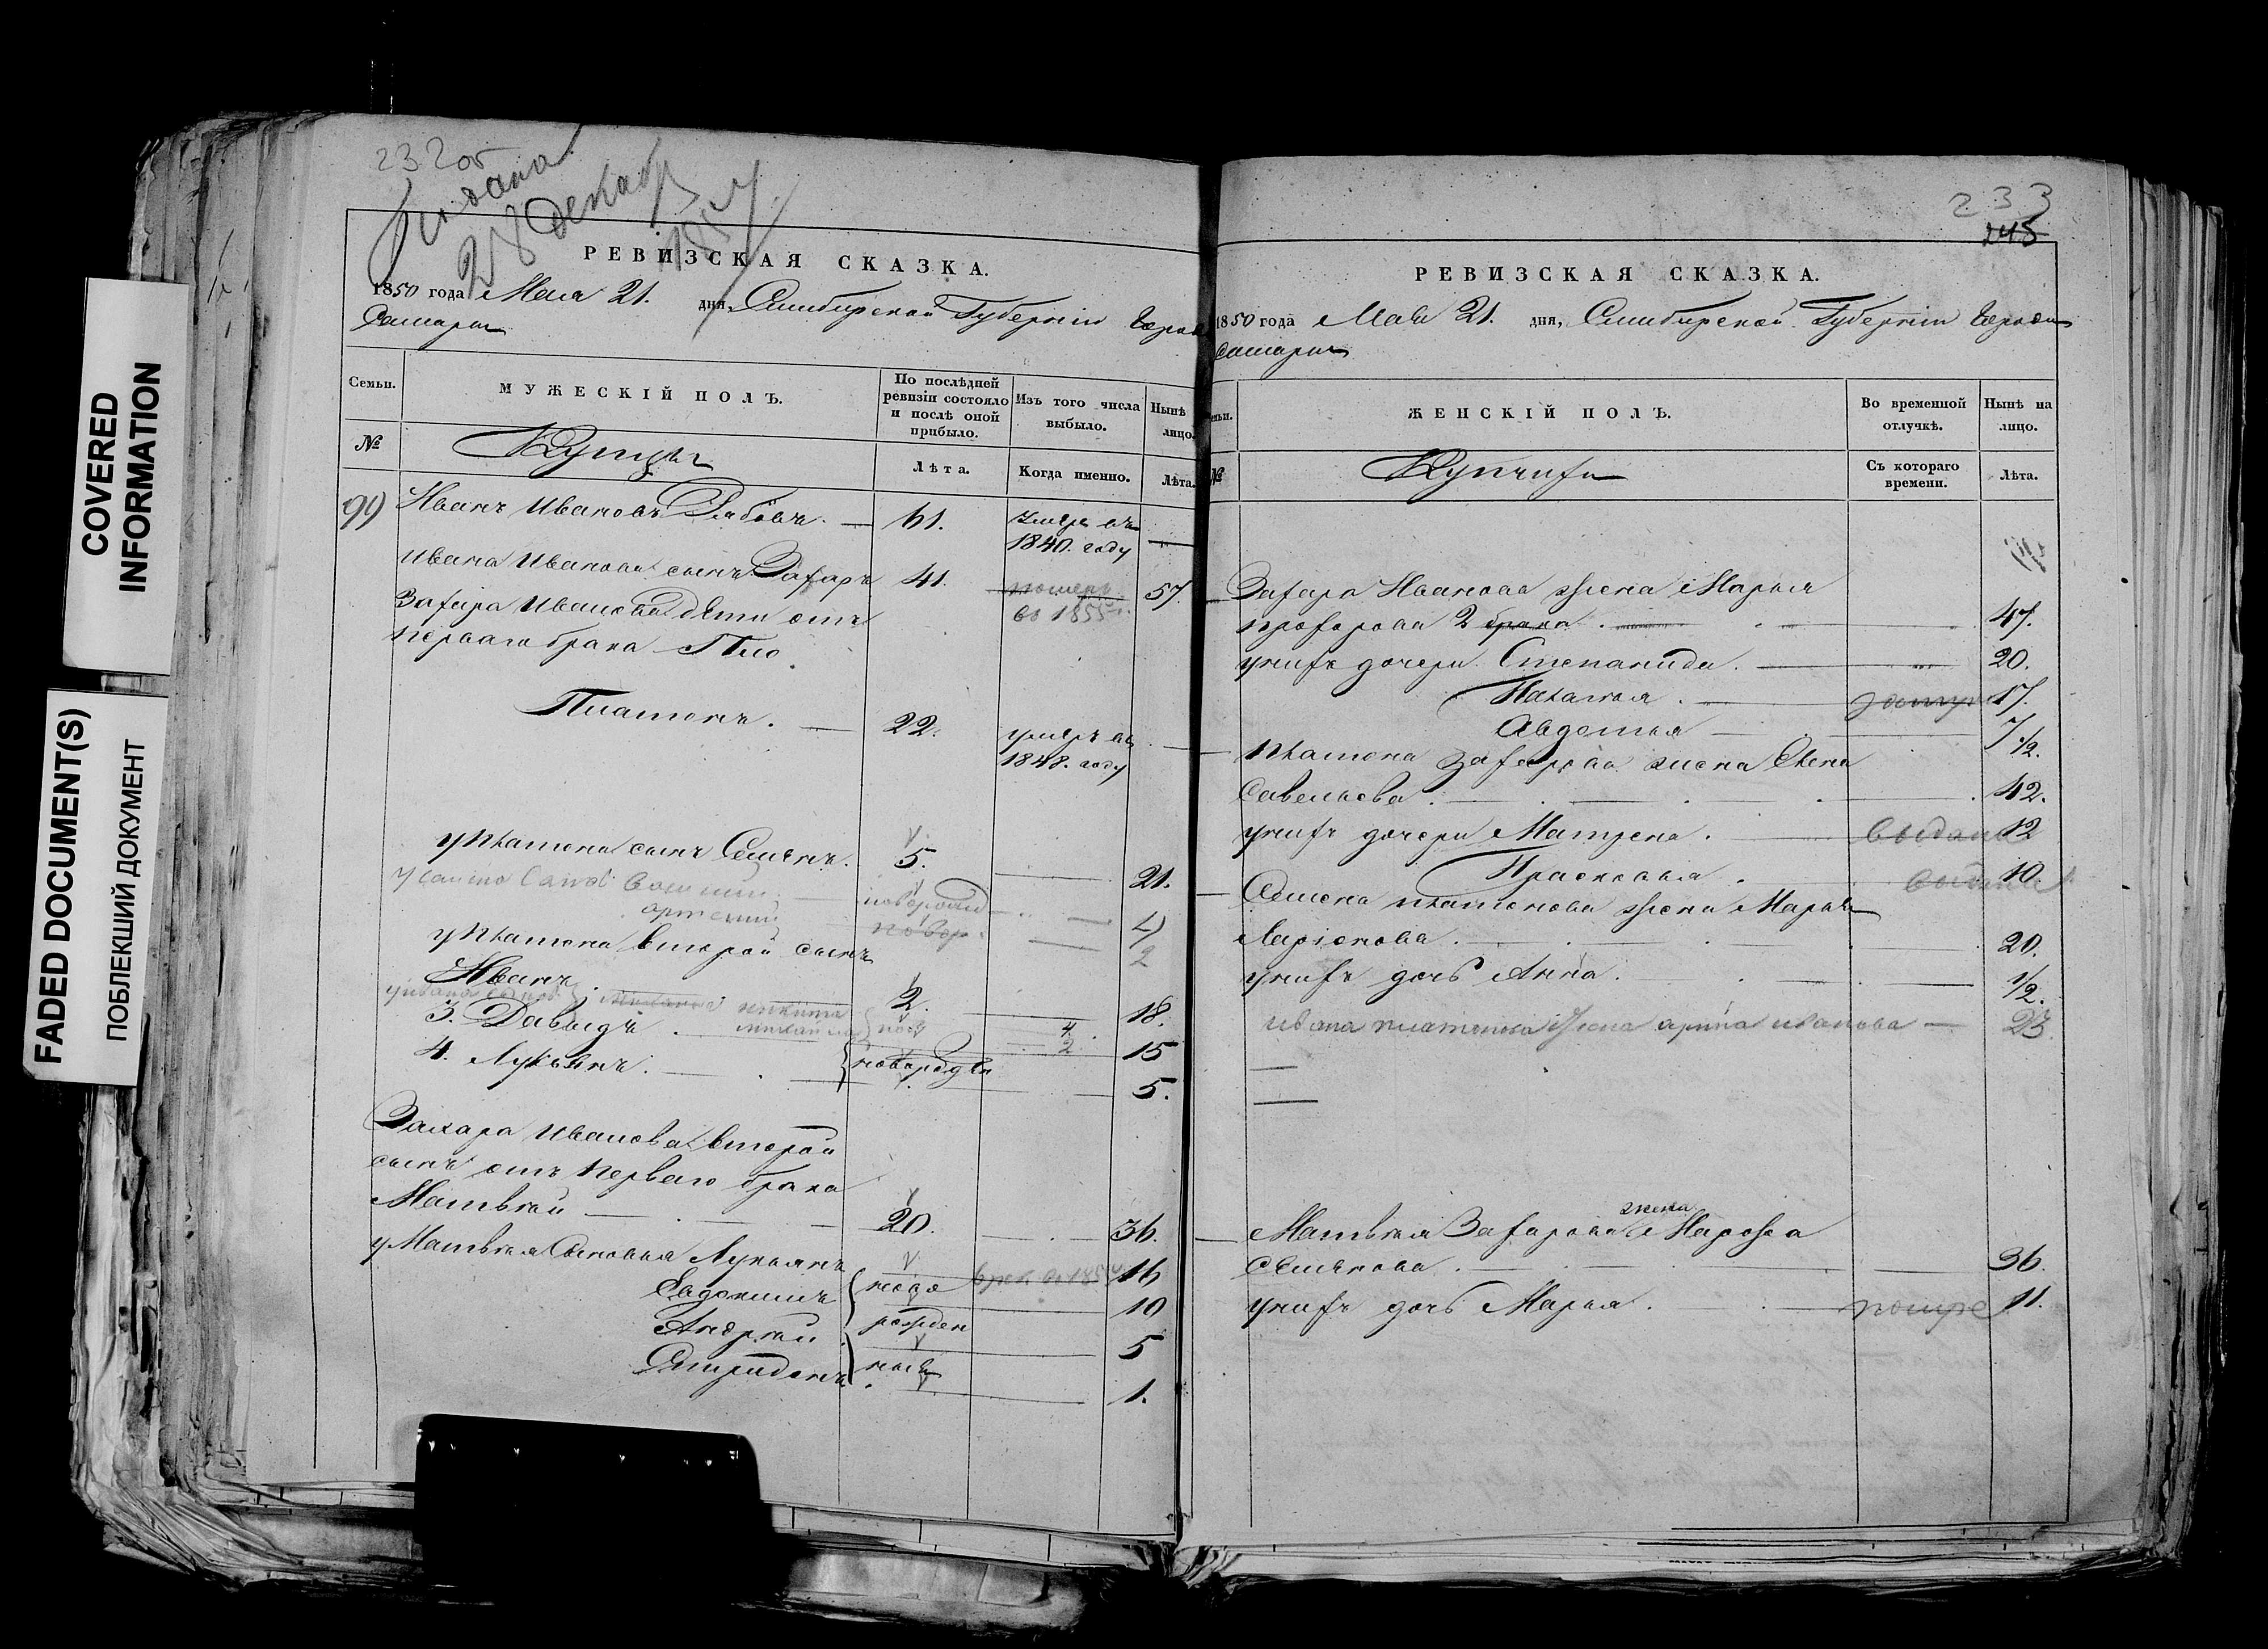 COVERED INFORMATION
FADED DOCUMENT(S)
ПОБЛЕКШИЙ ДОКУМЕНТ
232об
28 декабр
РЕВИЗСКАЯ СКАЗКА.
1850 года Мая 21. дня, Симбирской Губернiи Города
Самары
Семьи.
МУЖЕСКIЙ ПОЛЪ.
По послѣдней ревизiи состояло и послѣ оной прибыло.
Изъ того числа выбыло.
Нынѣ лицо.
№
Купцы
Лѣта.
Когда именно.
Лѣта.
99 Иванъ Ивановъ Рябовъ. 61. умеръ въ
1840. году
Ивана Иванова сынъ Захаръ 41. померъ 57.
Захара Иванова дѣти отъ во 1855
перваго брака
Платонъ. 22. умеръ въ
1848. году
у Платона сынъ Семенъ. 5. 21.
новорожд 4
2
у Платона второй сынъ
Иванъ 2. 18.
никита
3. Давыдъ. 15
4. Лукьянъ. новорожден 5.
Захара Иванова второй
сынъ отъ перваго брака
Матвѣй 20. 36.
у Матвѣя сыновья Лукьянъ 16
Евдокимъ ново 10
Андрей рожден 5
Спиридонъ ные 1.
233
245
РЕВИЗСКАЯ СКАЗКА.
1850 года Мая 21. дня, Симбирской Губернiи Города
Самары
ЖЕНСКIЙ ПОЛЪ.
Во временной отлучкѣ.
Нынѣ на лицо.
№
Купчихи
Съ котораго времени.
Лѣта.
Захара Иванова жена Марья
Прохорова 2 брака. 47.
у нихъ дочери Степанида. 20.
Наталья. 17.
Авдотья 7 1/2.
Платона Захарова жена Елена
Савельева. 42.
у нихъ дочери Матрена. выдана 12
Прасковья. выдана 10.
Семена Платонова жена Марья
Ларiонова. 20.
у нихъ дочь Анна. 1/2.
ивана платонова жена арина иванова 23
Матвѣя Захарова жена Марфа
Семенова. 36.
у нихъ дочь Марья. 11.